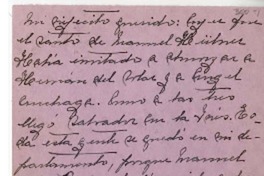 Mi viejito querido: Hoy es que
el santo de Manuel Hübner
Había invitado a almorzar a
Hernán del Solar y a Angel
Cruchaga. Como a las tres
llegó Salvador con la Inés. To
da esta gente se quedó en mi de
partamento, porque Manuel